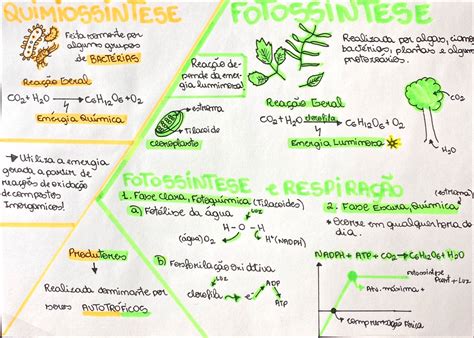 QUIMIOSSÍNTESE
Feita somente por
alguns grupos
de BACTÉRIAS
Reação Geral
CO2 + H2O → C6H12O6 + O2
Energia Química
→ Utiliza a energia
gerada a partir de
reações de oxidação
de compostos
Inorgânicos!
Produtores
Realizada somente por
seres AUTOTRÓFICOS
FOTOSSÍNTESE
Realizada por algas,
bactérias, plantas e alguns
protozoários.
Reação
depende da ener
gia luminosa!
estroma
Tilacoide
cloroplasto
Reação Geral
CO2 + H2O clorofila → C6H12O6 + O2
Energia Luminosa
CO2
H2O
FOTOSSÍNTESE e RESPIRAÇÃO
1. Fase Clara, Fotoquímica (Tilacoides)
a) Fotólise da água
LUZ
H - O - H
(água) O2
H+ (NADPH)
b) Fosforilação
LUZ
clorofila → e-
ADP
ATP
(estroma)
2. Fase Escura, Química
* Ocorre em qualquer hora
do dia.
NADPH + ATP + CO2 → C6H12O6 + H2O
Fotossíntese
+ LUZ
Atv. máxima
compensação fótica